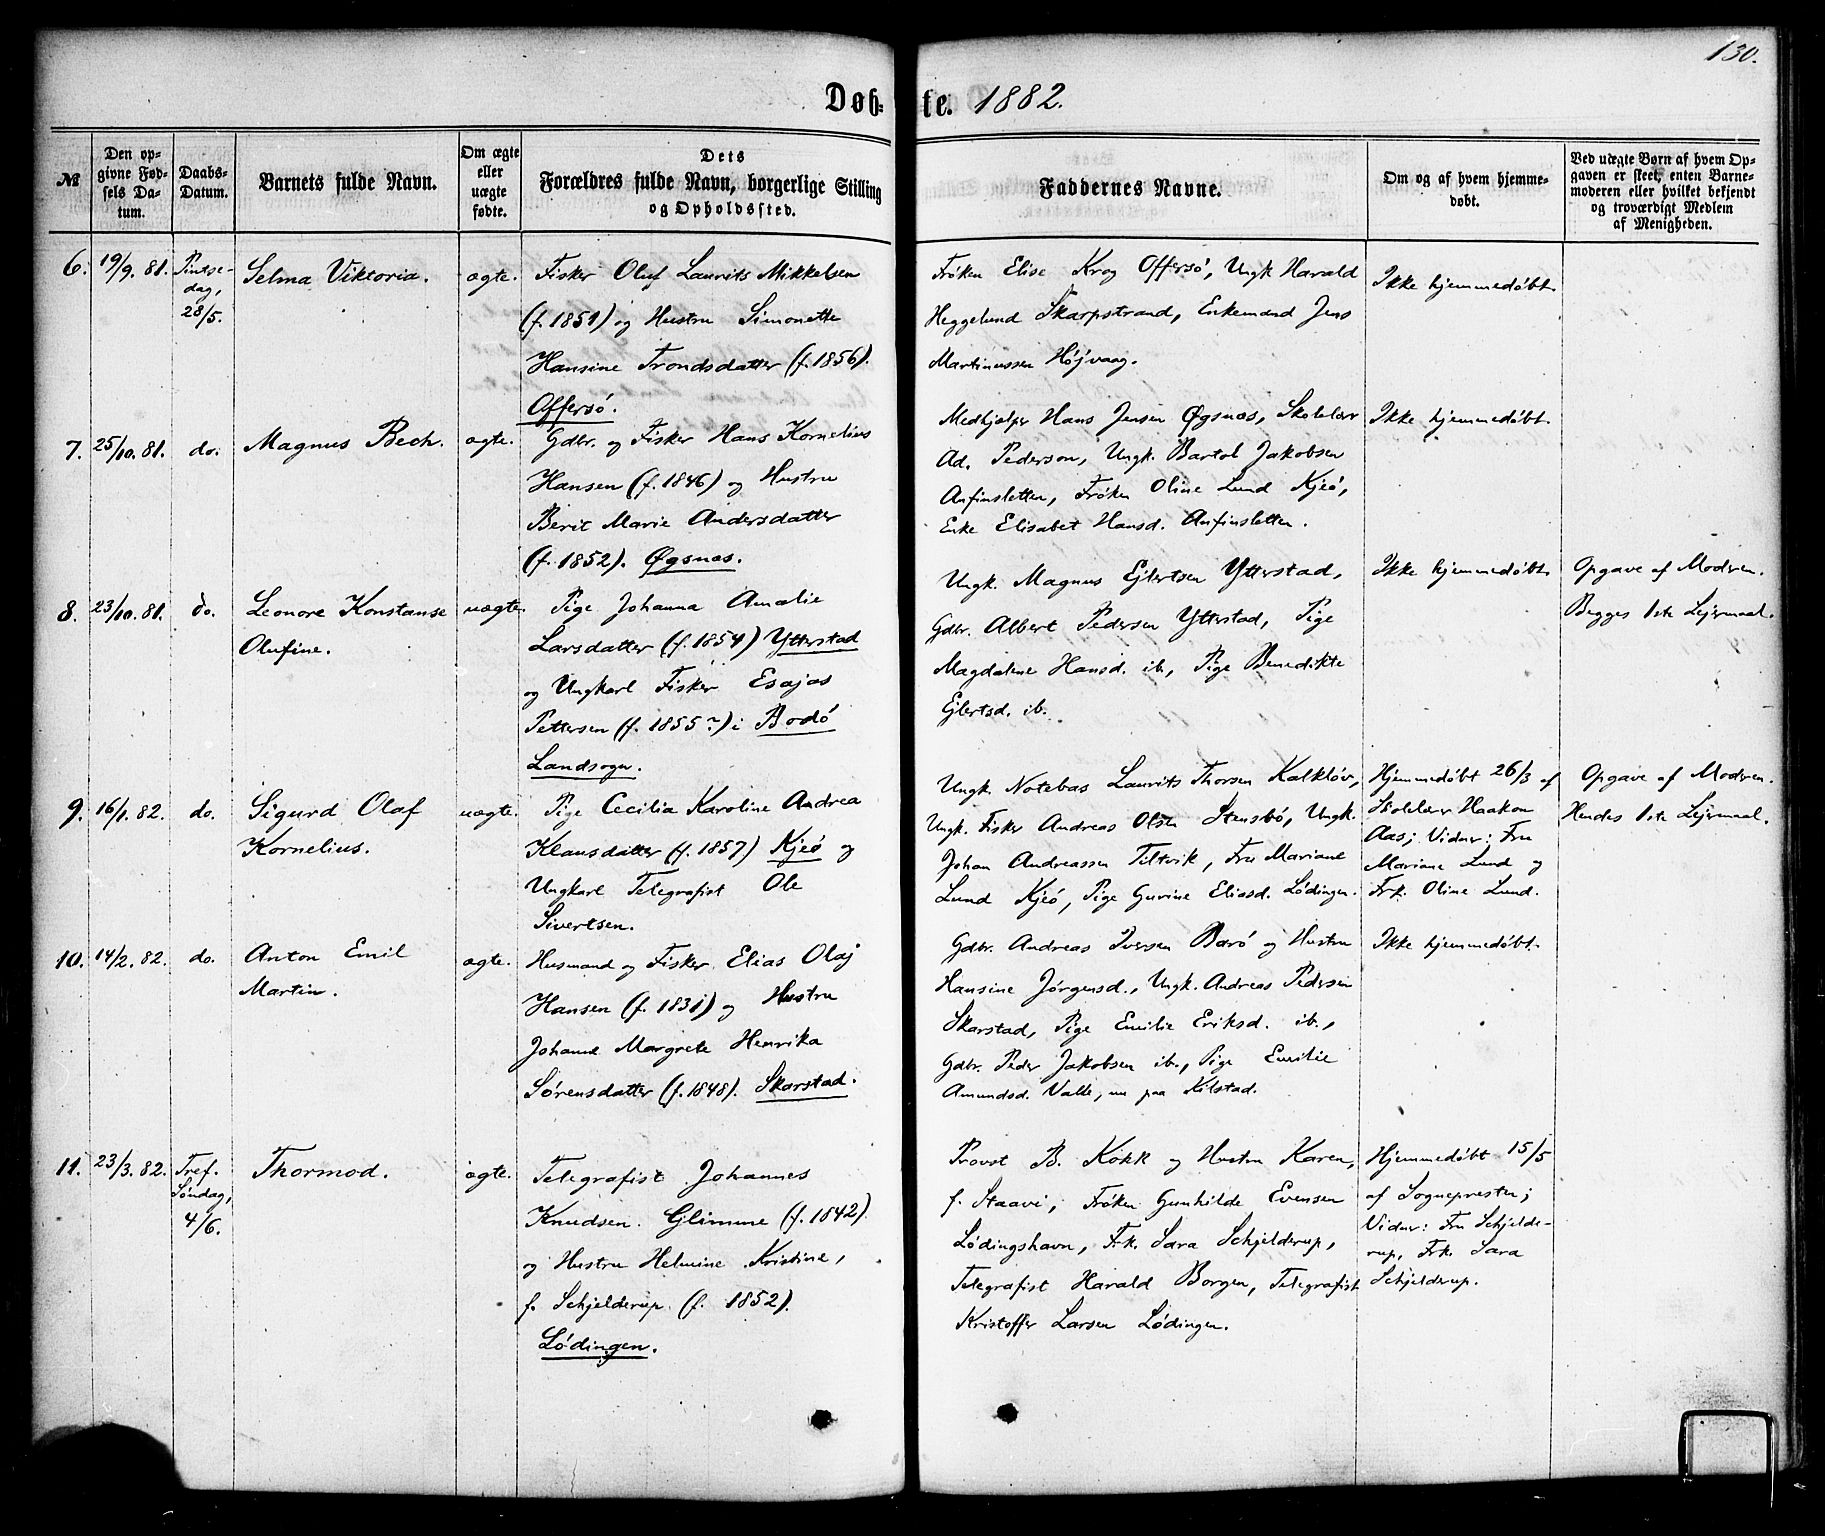 130.
Døbte. 1882.
№
Den opgivne Fødsels Datum.
Daabs-Datum.
Barnets fulde Navn.
Om ægte eller uægte fødte.
Dets Forældres fulde Navn, borgerlige Stilling og Opholdssted.
Faddernes Navne.
Om og af hvem hjemmedøbt.
Ved uægte Børn af hvem Opgaven er skeet, enten Barnemoderen eller hvilket bekjendt og troværdigt Medlem af Menigheden.
6. 19/9. 81. Pintse-
dag,
28/5.
Selma Viktoria.
ægte.
Fisker Oluf Laurits Mikkelsen
(f. 1851) og Hustru Simonette
Hansine Trondsdatter (f. 1856).
Offersø.
Frøken Elise Krog Offersø, Ungk Harald
Heggelund Skarpstrand, Enkemand Jens
Martinussen Højvaag.
Ikke hjemmedøbt.
7. 25/10. 81. do.
Magnus Bech.
ægte.
Gdbr. og Fisker Hans Kornelius
Hansen (f. 1846) og Hustru
Berit Marie Andersdatter
(f. 1852). Øgsnæs.
Medhjælper Hans Jensen Øgsnæs, Skolelær
Ad. Pederson, Ungk. Bartol Jakobsen
Anfinsletten, Frøken Oline Lund Kjeø,
Enke Elisabet Hansd. Anfinsletten.
Ikke hjemmedøbt.
8. 23/10. 81. do.
Leonore Konstanse
Olufine.
uægte.
Pige Johanna Amalie
Larsdatter (f. 1854) Ytterstad
og Ungkarl Fisker Esajas
Pettersen (f. 1855?) i Bodø
Landsogn.
Ungk. Magnus Ejlertsen Ytterstad,
Gdbr. Albert Pedersen Ytterstad, Pige
Magdalene Hansd. ib., Pige Benedikte
Ejlertsd. ib.
Ikke hjemmedøbt.
Opgave af Modren.
Begges 1ste Lejermaal.
9. 16/1. 82. do.
Sigurd Olaf
Kornelius.
uægte.
Pige Cecilia Karoline Andrea
Klausdatter (f. 1857) Kjeø og
Ungkarl Telegrafist Ole
Sivertsen.
Ungk. Notebas Laurits Thorsen Kalkløv,
Ungk. Fisker Andreas Olsen Stensbø, Ungk.
Johan Andreassen Tiltvik, Fru Mariane
Lund Kjeø, Pige Gurine Eliasd. Lødingen.
Hjemmedøbt 26/3 af
Skolelærer Haakon
Aas; Vidner: Fru
Mariane Lund og
Frk. Oline Lund.
Opgave af Modren.
Hendes 1ste Lejermaal.
10. 14/2. 82. do.
Anton Emil
Martin.
ægte.
Husmand og Fisker Elias Olaj
Hansen (f. 1831) og Hustru
Johanne Margrete Henrika
Sørensdatter (f. 1848). Skarstad.
Gdbr. Andreas Iversen Barø og Hustru
Hansine Jørgensd., Ungk. Andreas Pedersen
Skarstad, Pige Emilie Eriksd. ib.,
Gdbr. Peder Jakobsen ib., Pige Emilie
Amundsd. Valle, nu paa Kilstad.
Ikke hjemmedøbt.
11. 23/3. 82. Tref.
Søndag,
4/6.
Thormod.
ægte.
Telegrafist Johannes
Knudsen Glimme (f. 1842)
og Hustru Helmine Kristine,
f. Schjelderup (f. 1852).
Lødingen.
Provst B. Kokk og Hustru Karen,
f. Staavi, Frøken Gunhilde Evensen
Lødingshavn, Frk. Sara Schjelderup,
Telegrafist Harald Borgen, Telegrafist
Kristoffer Larsen Lødingen.
Hjemmedøbt 15/5
af Sognepresten;
Vidner: Fru Schjelde-
rup, Frk. Sara
Schjelderup.